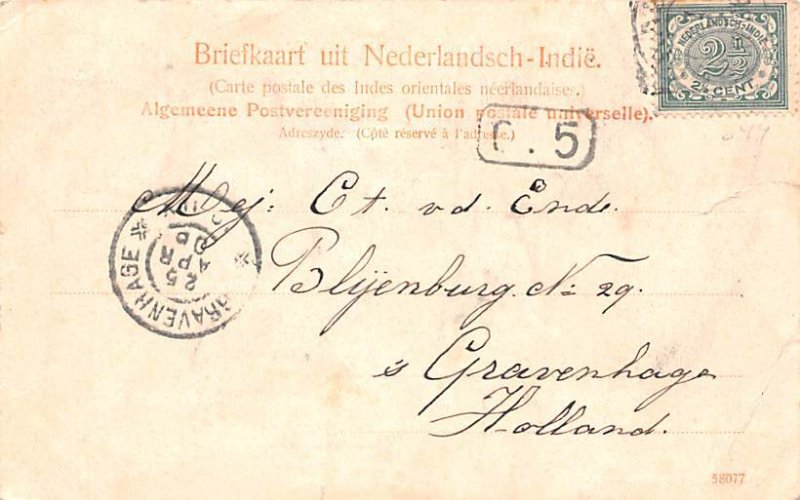 Briefkaart uit Nederlandsch-Indië.
(Carte postale des Indes orientales néerlandaises.)
Algemeene Postvereeniging (Union postale universelle).
Adreszyde. (Côté réservé à l'adresse.)
NEDERLANDSCH-INDIË
2½
2½ CENT
. 5
Mej: Ct. vd. Ende.
Blijenburg. No 29.
s Gravenhage
Holland.
GRAVENHAGE
25
APR
58077